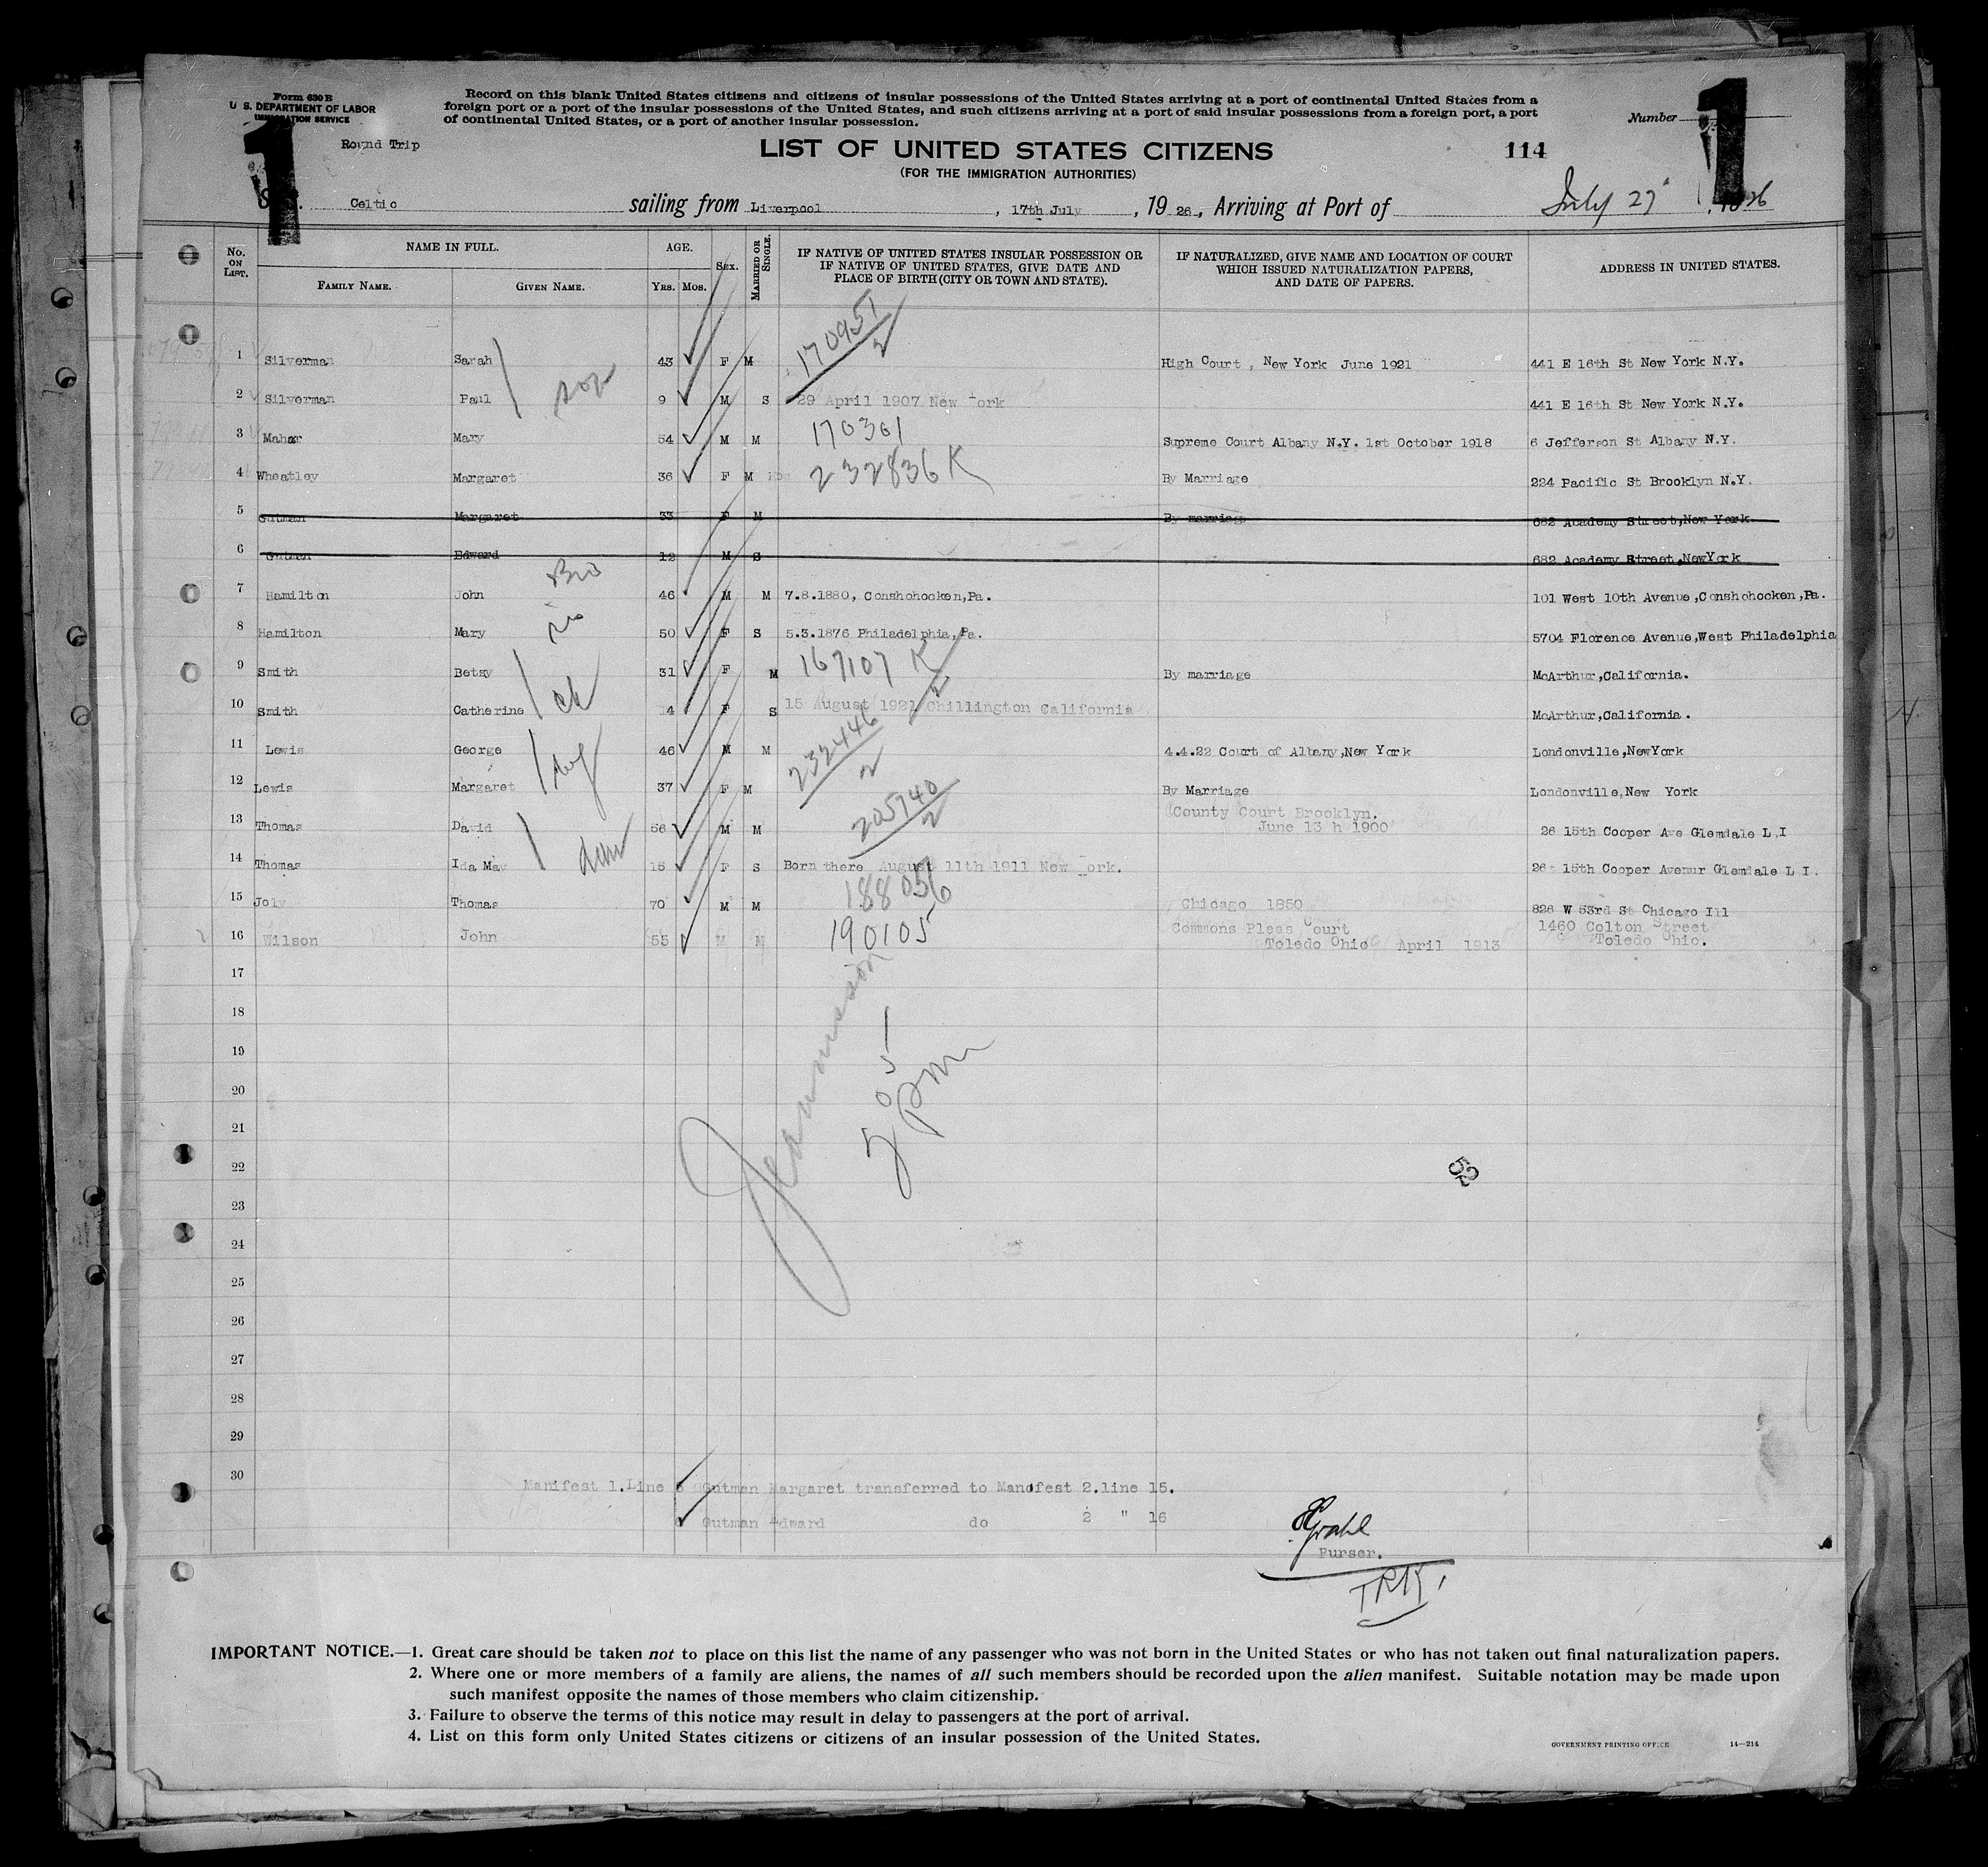 Form 630 B
U. S. DEPARTMENT OF LABOR
IMMIGRATION SERVICE
Record on this blank United States citizens and citizens of insular possessions of the United States arriving at a port of continental United States from a
foreign port or a port of the insular possessions of the United States, and such citizens arriving at a port of said insular possessions from a foreign port, a port
of continental United States, or a port of another insular possession.
Number
1 1
Round Trip
LIST OF UNITED STATES CITIZENS 114
(FOR THE IMMIGRATION AUTHORITIES)
Celtic sailing from Liverpool, 17th July, 1926, Arriving at Port of July 27, 1926
No. ON LIST. NAME IN FULL. FAMILY NAME. GIVEN NAME. AGE. YRS. MOS. SEX. MARRIED OR SINGLE. IF NATIVE OF UNITED STATES INSULAR POSSESSION OR IF NATIVE OF UNITED STATES, GIVE DATE AND PLACE OF BIRTH (CITY OR TOWN AND STATE). IF NATURALIZED, GIVE NAME AND LOCATION OF COURT WHICH ISSUED NATURALIZATION PAPERS, AND DATE OF PAPERS. ADDRESS IN UNITED STATES.
1 Silverman Sarah 43 F M 170951/2 High Court, New York June 1921 441 E 16th St New York N.Y.
2 Silverman Paul 9 M S 29 April 1907 New York 441 E 16th St New York N.Y.
3 Mahar Mary 54 M M 170301 Supreme Court Albany N.Y. 1st October 1918 6 Jefferson St Albany N.Y.
4 Wheatley Margaret 36 F M 232836 K By Marriage 224 Pacific St Brooklyn N.Y.
5 Gutman Margaret 33 F M By marriag 682 Academy Street,New York
6 Gutman Edward 12 M S 682 Academy Street,NewYork
7 Hamilton John 46 M M 7.8.1880, Conshohocken,Pa. 101 West 10th Avenue,Conshohocken,Pa.
8 Hamilton Mary 50 F S 5.3.1876 Philadelphia,Pa. 5704 Florence Avenue,West Philadelphia
9 Smith Betsy 31 F M 167107 K By marriage McArthur,California.
10 Smith Catherine 4 F S 15 August 1921 Chillington California McArthur,California.
11 Lewis George 46 M M 232446/2 4.4.22 Court of Albany,New York Londonville,NewYork
12 Lewis Margaret 37 F M By Marriage Londonville,New York
13 Thomas David 56 M M 205740/2 County Court Brooklyn. June 13 h 1900 26 15th Cooper Ave Glemdale L.I
14 Thomas Ida May 15 F S Born there August 11th 1911 New York. 26 15th Cooper Avenur Glemdale L I.
15 Joly Thomas 70 M M 188056 Chicago 1850 826 W 53rd St Chicago Ill
16 Wilson John 55 M M 190105 Commons Pleas Court Toledo Ohio April 1913 1460 Colton Street Toledo Ohio.
17
18
19
20
21
22
23
24
25
26
27
28
29
30
505
pm
52
Manifest 1.Line 5 Gutman Margaret transferred to Manofest 2.line 15.
6 Gutman Edward do 2 " 16
Purser.
IMPORTANT NOTICE.—1. Great care should be taken not to place on this list the name of any passenger who was not born in the United States or who has not taken out final naturalization papers.
2. Where one or more members of a family are aliens, the names of all such members should be recorded upon the alien manifest. Suitable notation may be made upon
such manifest opposite the names of those members who claim citizenship.
3. Failure to observe the terms of this notice may result in delay to passengers at the port of arrival.
4. List on this form only United States citizens or citizens of an insular possession of the United States.
GOVERNMENT PRINTING OFFICE 14—214